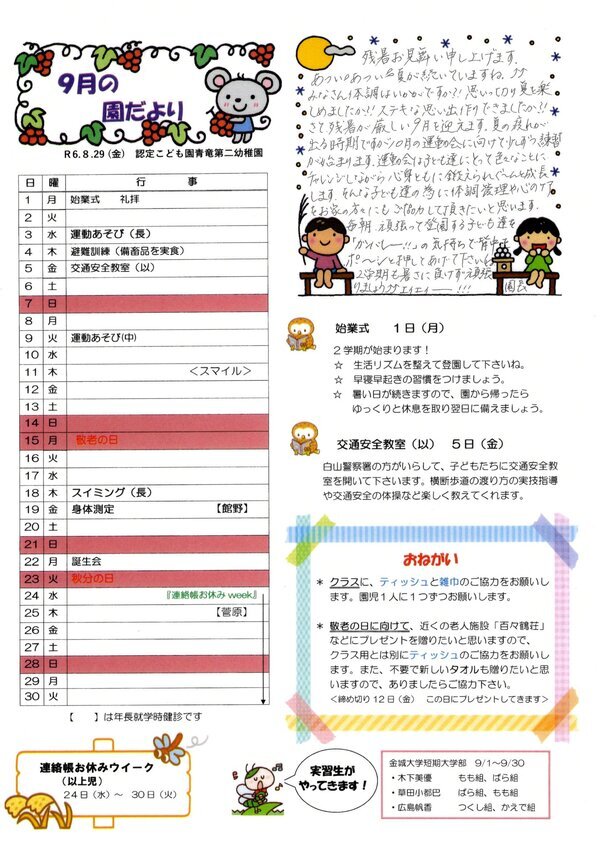 9月の
園だより
R6.8.29(金) 認定こども園青竜第二幼稚園
日 曜 行 事
1 月 始業式 礼拝
2 火
3 水 運動あそび(長)
4 木 避難訓練(備蓄品を実食)
5 金 交通安全教室(以)
6 土
7 日
8 月
9 火 運動あそび(中)
10 水
11 木 <スマイル>
12 金
13 土
14 日
15 月 敬老の日
16 火
17 水
18 木 スイミング(長)
19 金 身体測定 【館野】
20 土
21 日
22 月 誕生会
23 火 秋分の日
24 水 『連絡帳お休みweek』
25 木 【菅原】
26 金
27 土
28 日
29 月
30 火
【 】は年長就学時健診です
連絡帳お休みウイーク
(以上児)
24日(水)~ 30日(火)
残暑お見舞い申し上げます。
あつい◦あつい夏が続いていますね。
みなさん体調はいかがですか!?思いっきり夏を楽し
めましたか!!ステキな思い出作りできましたか!!
さて残暑が厳しい9月を迎えます。夏の疲れが
出る時期ですが10月の運動会に向けて少しずつ練習
が始まります。運動会は子ども達にとって色々なことに
チャレンジしながら心身ともに鍛えられぐんと成長
します。そんな子ども達の為に体調管理や心のケア
をお家の方々にもご協力して頂きたいと思います。
毎朝、頑張って登園する子ども達を
「かわいい~!!」の気持ちで背中を
ポ~ンと押してあげて下さいね
2学期も暑さに負けず頑張
りましょう エイエイオー!!! 園長
始業式 1日(月)
2学期が始まります!
☆ 生活リズムを整えて登園して下さいね。
☆ 早寝早起きの習慣をつけましょう。
☆ 暑い日が続きますので、園から帰ったら
ゆっくりと休息を取り翌日に備えましょう。
交通安全教室(以) 5日(金)
白山警察署の方がいらして、子どもたちに交通安全教
室を開いて下さいます。横断歩道の渡り方の実技指導
や交通安全の体操など楽しく教えてくれます。
おねがい
* クラスに、ティッシュと雑巾のご協力をお願いし
ます。園児1人に1つずつお願いします。
* 敬老の日に向けて、近くの老人施設「百々鶴荘」
などにプレゼントを贈りたいと思いますので、
クラス用とは別にティッシュのご協力をお願いし
ます。また、不要で新しいタオルも贈りたいと思
いますので、ありましたらご協力下さい。
<締め切り12日(金) この日にプレゼントしてきます>
実習生が
やってきます!
金城大学短期大学部 9/1~9/30
・木下美優 もも組、ばら組
・草田小都巴 ばら組、もも組
・広島帆香 つくし組、かえで組